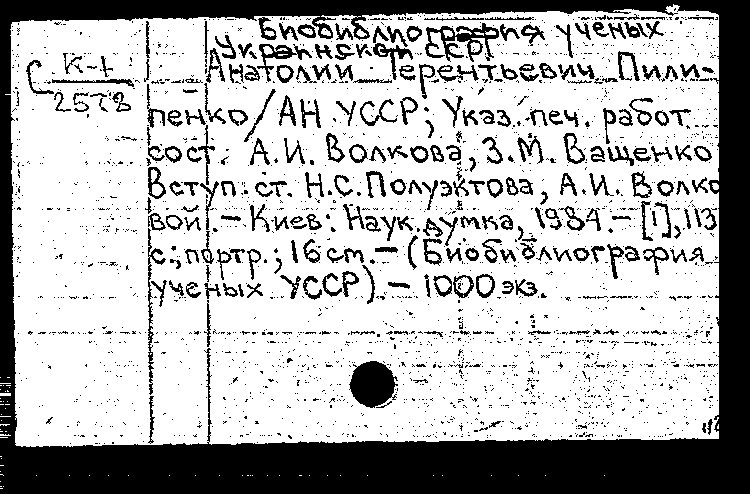 Биобиблиография ученых
Украинской ССР
С К-1
2578
Анатолий Терентьевич Пили-
пенко/АН УССР; Указ. печ. работ
сост. А.И. Волкова, З.М. Ващенко
Вступ. ст. Н.С. Полуэктова, А.И. Волко
вой. – Киев: Наук. думка, 1984. – [1], 113
с.; портр.; 16 cm. – (Биобиблиография
ученых УССР). – 1000 экз.